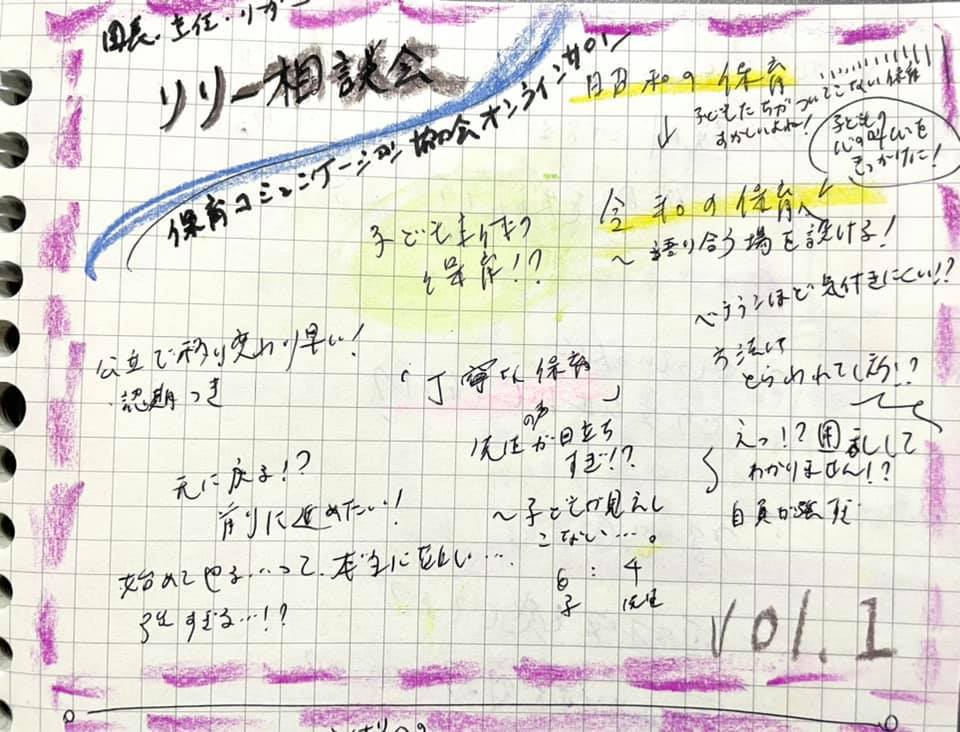 園長・主任・リーダ
リリー相談会
保育コミュニケーション協会オンラインサロン
昭和の保育
↓ 子どもたちがついてこない保育
むずかしいよね!
子どもの
心の叫びを
きっかけに!
令和の保育へ
〜語り合う場を設ける!
子ども主体の
保育!?
ベテランほど気付きにくい!?
方法に
とらわれてしまう!?
公立で移り変わり早い!
「丁寧な保育」
先生の声が目立ち
すぎ!?
えっ!?困乱して
わかりません!?
自負が強すぎ
元に戻る!?
前りに進めたい!
〜子どもが見えし
こない…。
6 : 4
子 先生
始めてやる…って、本当に正しい…
強すぎる…!?
vol.1